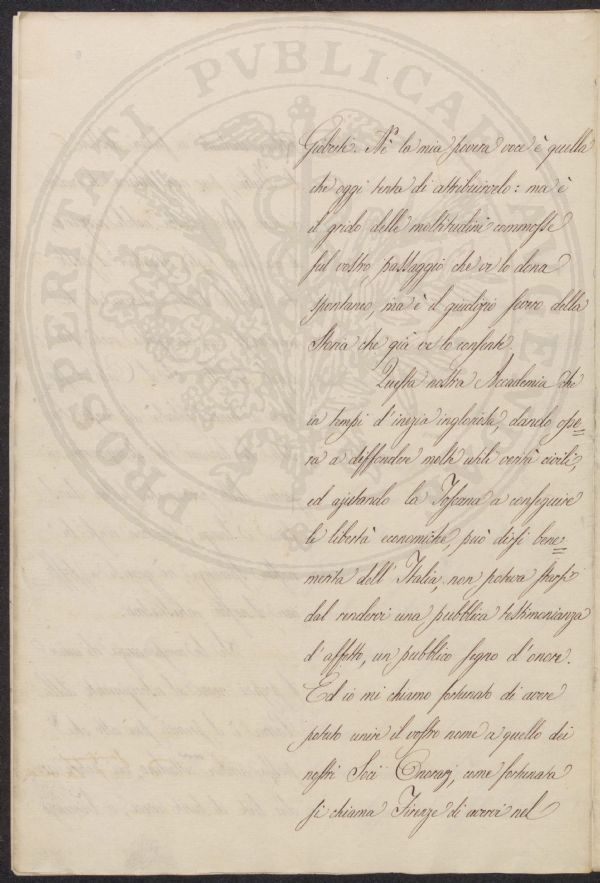 PROSPERITATI PVBLICAE AVGENDAE
Gioberti. Nè la mia povera voce è quella
che oggi tenta di attribuirvelo: ma è
il grido delle moltitudini commosse
sul vostro passaggio che ve lo dona
spontaneo, ma è il giudizio severo della
Storia che già ve lo consente.
Questa nostra Accademia che
in tempi d'inezia ingloriosa, dando ope=
ra a diffondere molte utili verità civili,
ed ajutando la Toscana a conseguire
le libertà economiche, può dirsi bene=
merita dell'Italia, non poteva starsi
dal rendervi una pubblica testimonianza
d'affetto, un pubblico segno d'onore.
Ed io mi chiamo fortunato di avere
potuto unire il vostro nome a quello dei
nostri Soci Onorarj, come fortunata
si chiama Firenze di avervi nel